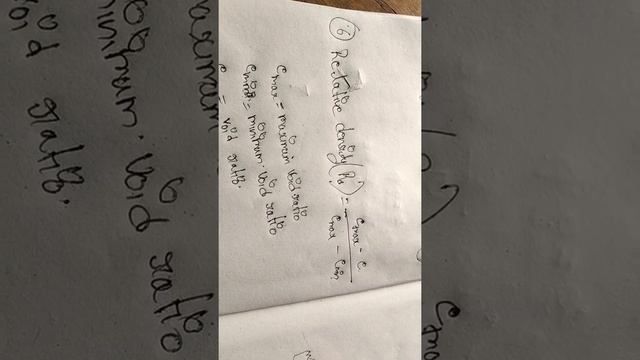 ⑥ Relative density (Rd) = emax - e / emax - emin
emax = maximum void ratio
emin = minimum void ratio
e = void ratio.